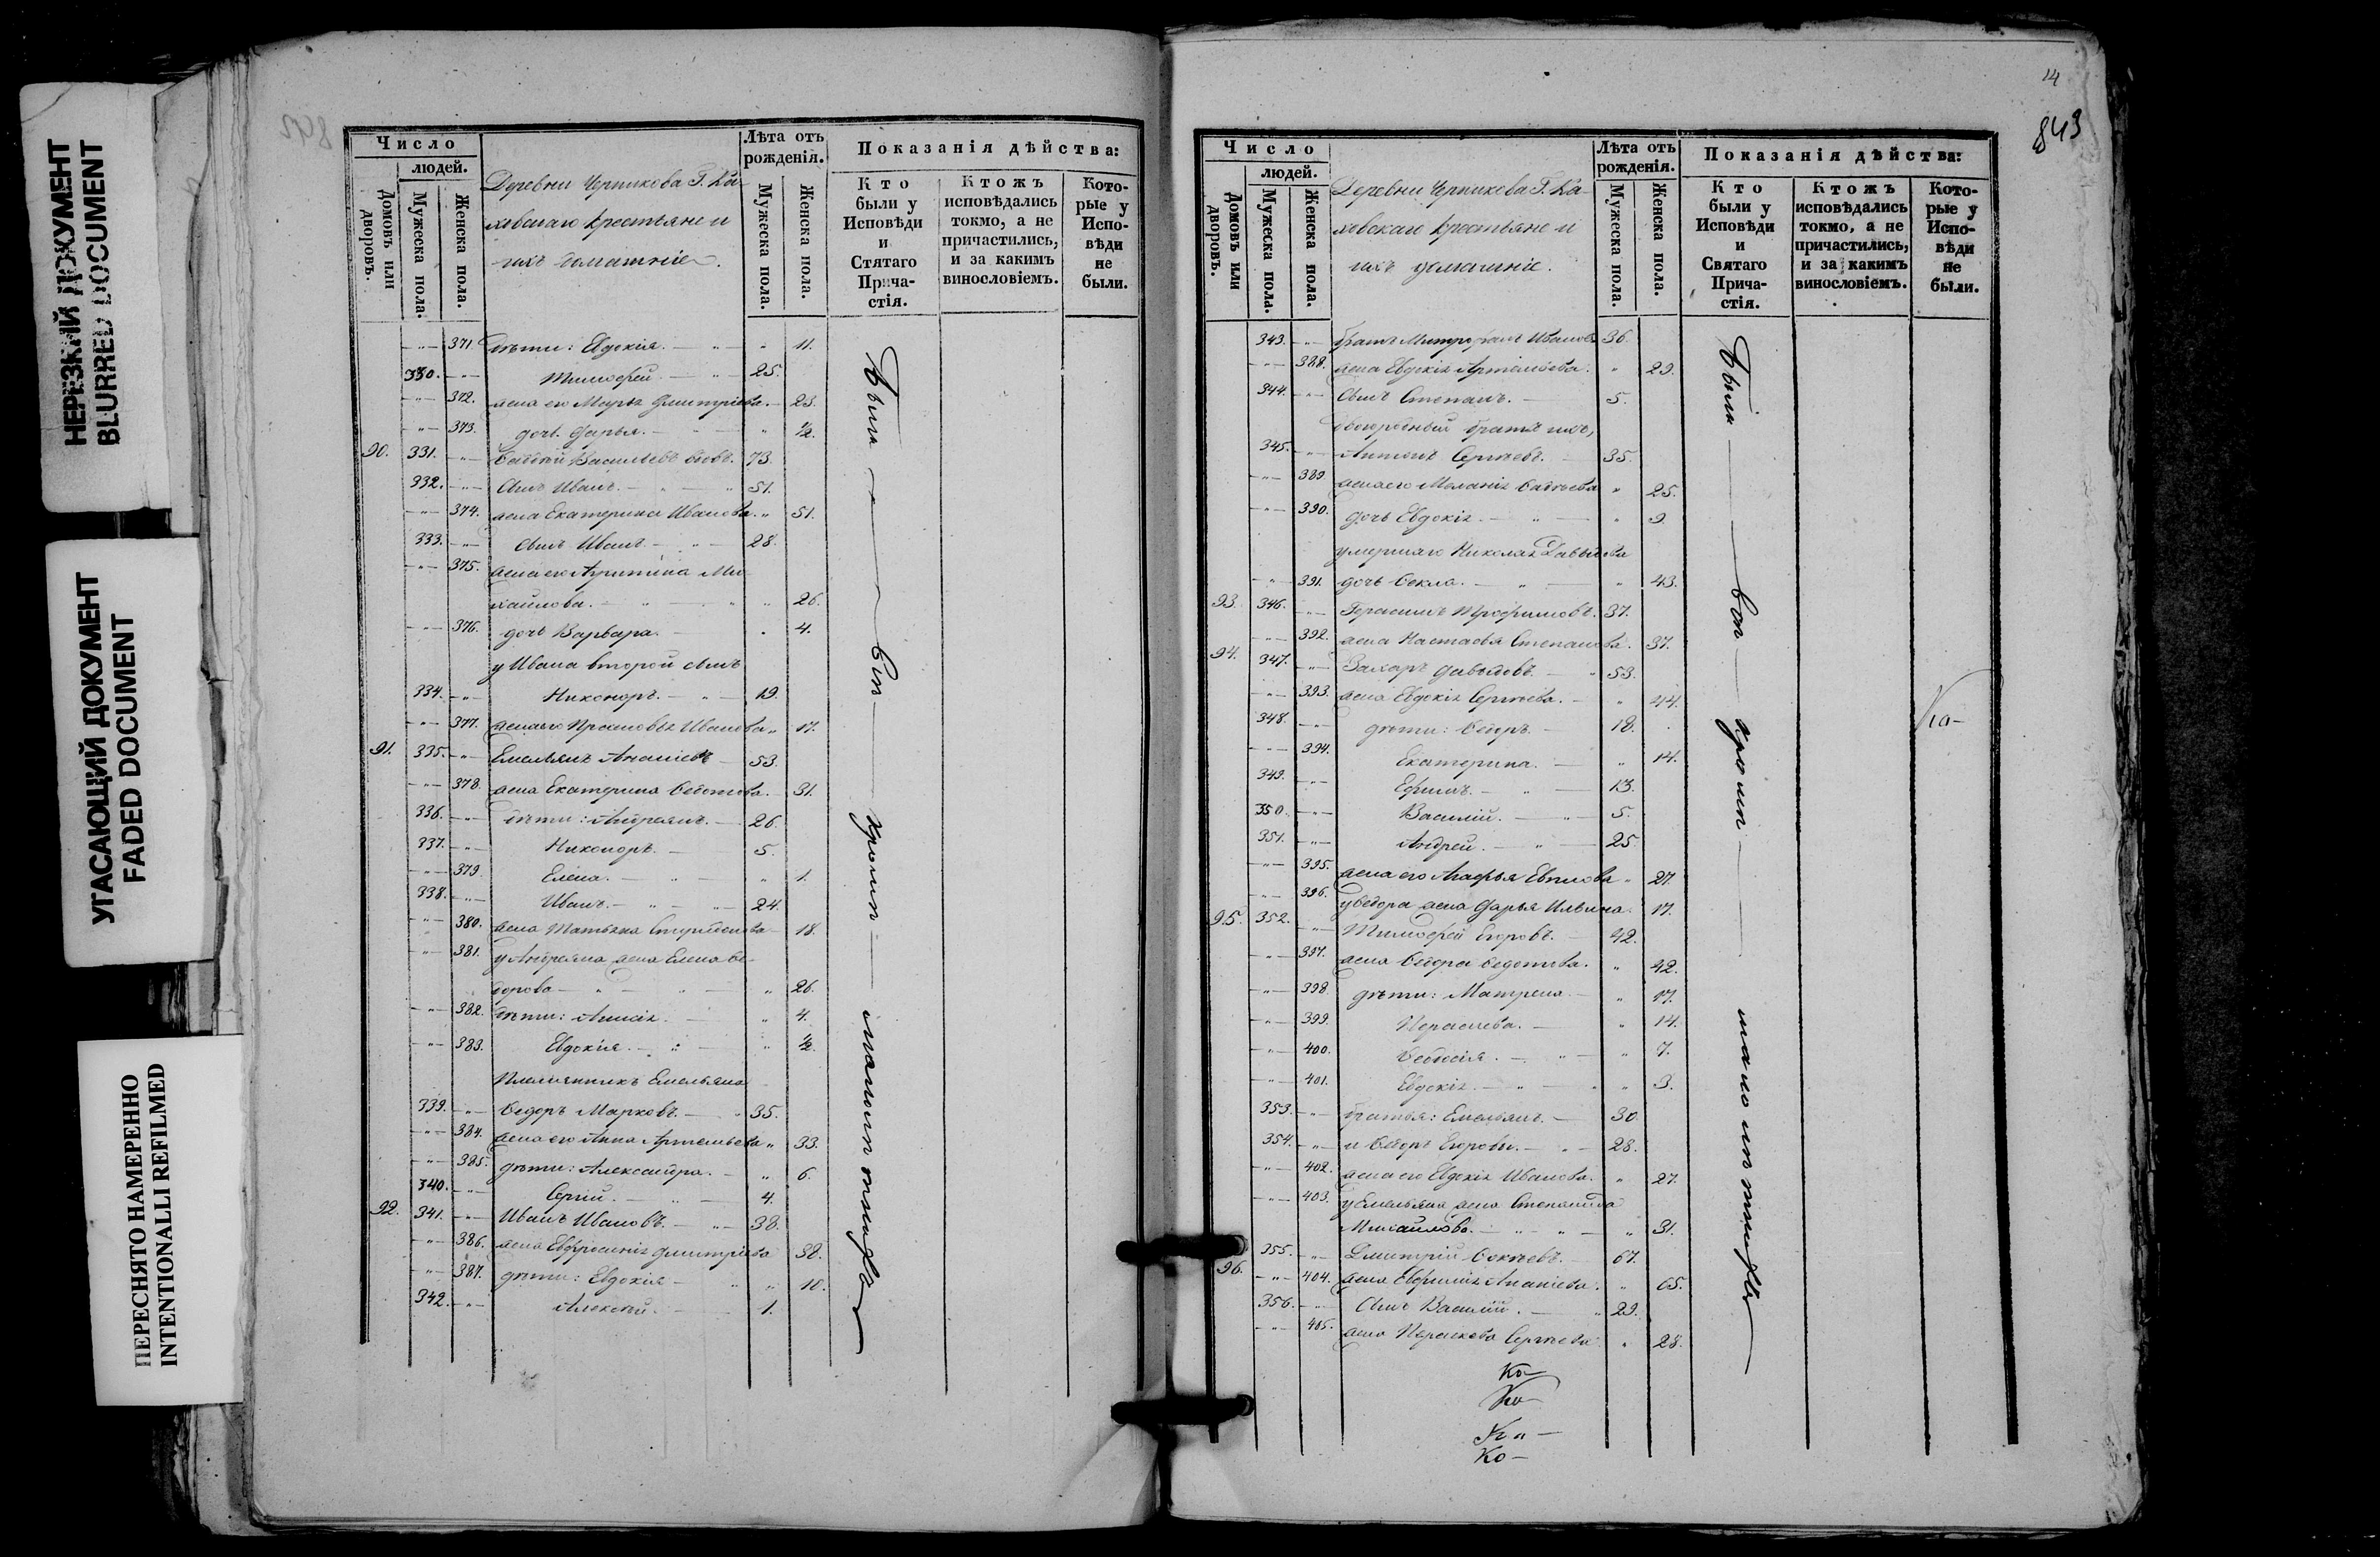 НЕРЕЗКИЙ ДОКУМЕНТ
BLURRED DOCUMENT
УГАСАЮЩИЙ ДОКУМЕНТ
FADED DOCUMENT
ПЕРЕСНЯТО НАМЕРЕННО
INTENTIONALLI REFILMED
Число
людей.
Домовъ или дворовъ.
Мужеска пола.
Женска пола.
Деревни Черникова Г. Ка-
ховскаго крестьяне и
ихъ домашніе.
Лѣта отъ рожденія.
Мужеска пола.
Женска пола.
Показанія дѣйства:
Кто были у Исповѣди и Стятаго Прича-стія.
Ктожъ исповѣдались токмо, а не причастились, и за какимъ винословіемъ.
Кото-рые у Испо-вѣди не были.
371. дѣти: Евдокія. 11.
330. Тимофей. 25.
372. жена его Марья Дмитріева. 23.
373. дочь Дарья. ½.
90. 331. Васильевъ вдовъ. 73.
332. Сынъ Иванъ. 51.
374. жена Екатерина Иванова. 51.
333. сынъ Иванъ. 28.
375. жена его Ми-
хайлова. 26.
376. дочь Варвара. 4.
у Ивана второй сынъ
334. Никоноръ. 19.
377. жена его Иванова 17.
91. 335. Емельянъ Ананіевъ 53.
378. жена Екатерина Ѳедотова. 31.
336. дѣти: Андреянъ. 26.
337. Никоноръ. 5.
379. Елена. 1.
338. Иванъ. 24.
380. жена Татьяна 18.
381. у Андреяна жена Елена Ѳе-
дорова 26.
382. дѣти: Анисія. 4.
383. Евдокія. ½.
Племянникъ Емельяна
339. Ѳедоръ Марковъ. 35.
384. жена его Анна Артемьева 33.
385. дѣти: Александра. 6.
340. Сергій. 4.
92. 341. Иванъ Ивановъ. 38.
386. жена Евфросинія Дмитріева 38.
387. дѣти: Евдокія 10.
342. Алексѣй. 1.
Были
14
843
Число
людей.
Домовъ или дворовъ.
Мужеска пола.
Женска пола.
Деревни Черникова Г. Ка-
ховскаго крестьяне и
ихъ домашніе.
Лѣта отъ рожденія.
Мужеска пола.
Женска пола.
Показанія дѣйства:
Кто были у Исповѣди и Святаго Прича-стія.
Ктожъ исповѣдались токмо, а не причастились, и за какимъ винословіемъ.
Кото-рые у Испо-вѣди не были.
343. братъ Митрофанъ Ивановъ 36.
388. жена Евдокія Артемьева. 29.
344. Сынъ Степанъ. 5.
двоюродный братъ ихъ,
345. Антонъ Сергѣевъ. 35.
389. жена его Меланія 25.
390. дочь Евдокія. 9.
умершаго Николая Давыдова
391. дочь Ѳекла. 43.
93. 346. Герасимъ Трофимовъ. 37.
392. жена Настасья Степанова. 37.
94. 347. Захаръ Давыдовъ. 53.
393. жена Евдокія Сергѣева. 44.
348. дѣти: Ѳедоръ 18.
394. Екатерина. 14.
349. Ефимъ. 13.
350. Василій. 5.
351. Андрей. 25
395. жена его Агафья 27.
396. у Ѳедора жена Дарья Ильина. 17.
95. 352. Тимофей Егоровъ. 42.
397. жена Ѳедора Ѳедотова. 42.
398. дѣти: Матрена. 17.
399. Параскева. 14.
400. Ѳедосія. 7.
401. Евдокія. 3.
353. братья: Емельянъ. 30
354. и Ѳедоръ Егоровы. 28.
402. жена его Евдокія Иванова. 27.
403. у Емельяна жена Степанида
Михайлова. 31.
96. 355. Дмитрій 67.
404. жена Евфимія Ананіева. 65.
356. Сынъ Василій. 29.
405. жена Параскева Сергѣева 28.
Были